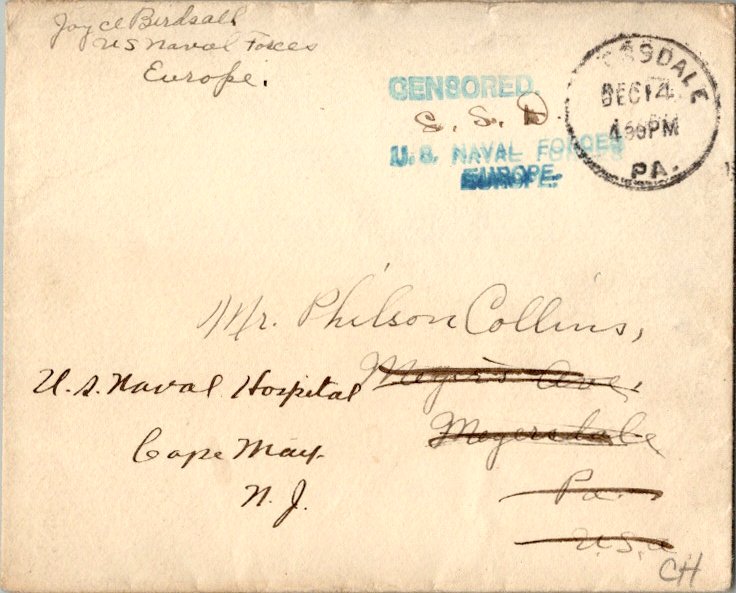 Joyce Birdsall
US Naval Forces
Europe.
CENSORED.
S. S. D.
U. S. NAVAL FORCES
EUROPE.
RSDALE
DEC 14
4 PM
PA.
Mr. Philson Collins,
Meyers Ave,
U.S. Naval Hospital
Meyersdale
Cape May.
Pa.
N. J.
U.S.A
CH